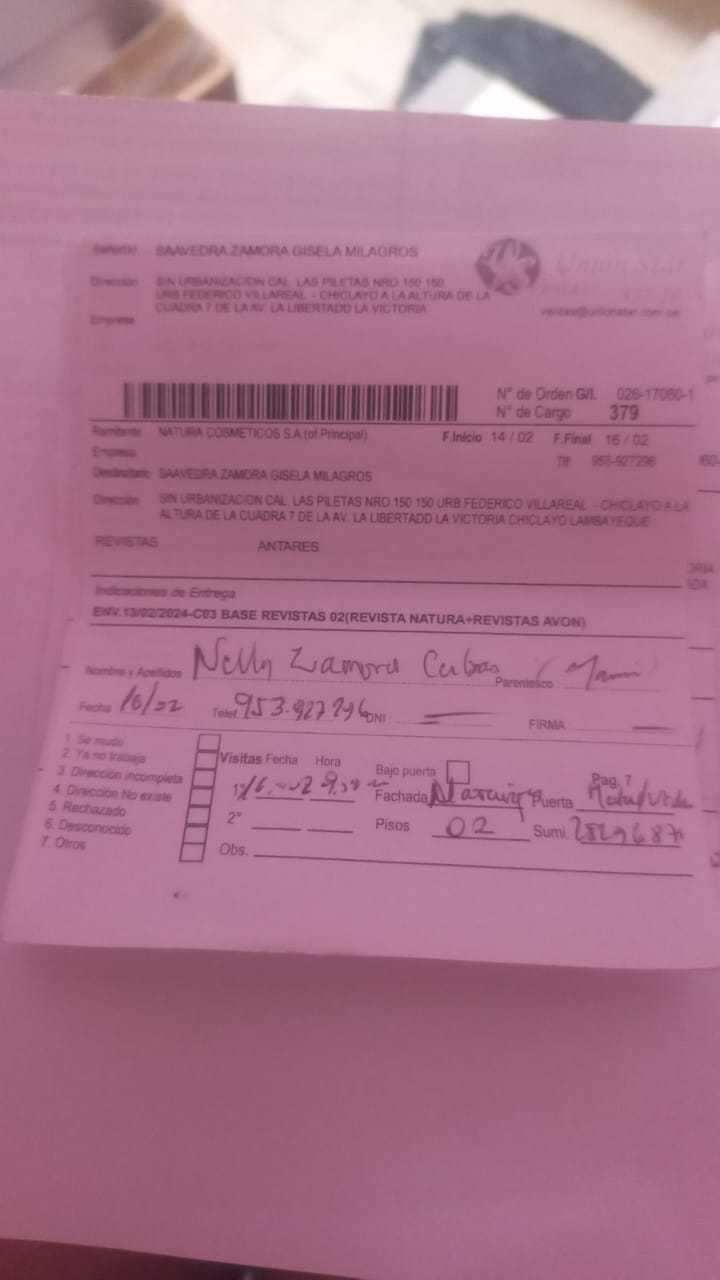 Señor(a) SAAVEDRA ZAMORA GISELA MILAGROS
Union Star
Dirección SIN URBANIZACION CAL LAS PILETAS NRO 150 150
URB FEDERICO VILLAREAL - CHICLAYO A LA ALTURA DE LA
CUADRA 7 DE LA AV. LA LIBERTADD LA VICTORIA
Empresa
N° de Orden G/I. 026-17060-1
N° de Cargo 379
Remitente NATURA COSMETICOS S.A (of Principal) F.Inicio 14 / 02 F.Final 16 / 02
Empresa Tlf 953-927296
Destinatario SAAVEDRA ZAMORA GISELA MILAGROS
Dirección SIN URBANIZACION CAL LAS PILETAS NRO 150 150 URB FEDERICO VILLAREAL - CHICLAYO A LA
ALTURA DE LA CUADRA 7 DE LA AV. LA LIBERTADD LA VICTORIA CHICLAYO LAMBAYEQUE
REVISTAS ANTARES
Indicaciones de Entrega
ENV.13/02/2024-C03 BASE REVISTAS 02(REVISTA NATURA+REVISTAS AVON)
Nombre y Apellidos Nelly Zamora Cubas Parentesco
Fecha 16/02 Telef. 953.927296 DNI FIRMA
1. Se mudo
2. Ya no trabaja
3. Dirección incompleta
4. Direccion No existe
5. Rechazado
6. Desconocido
7. Otros
Visitas Fecha Hora Bajo puerta Pag. 7
1° Fachada Puerta
2° Pisos 02 Sumi.
Obs.